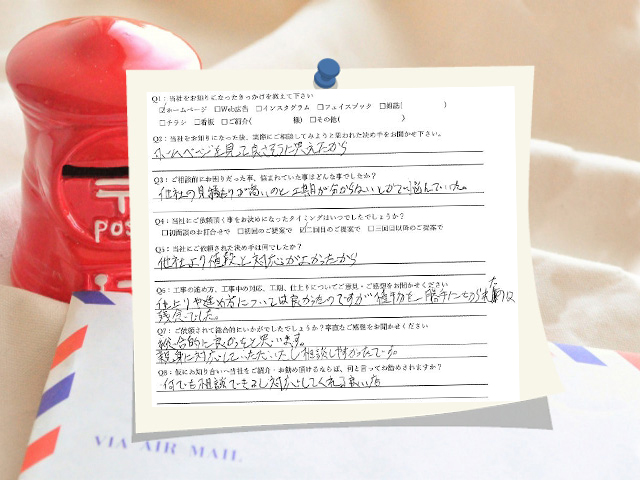 Q1：当社をお知りになったきっかけを教えて下さい
☑ホームページ □Web広告 □インスタグラム □フェイスブック □雑誌( )
□チラシ □看板 □ご紹介( 様) □その他( )
Q2：当社をお知りになった後、実際にご相談してみようと思われた決め手をお聞かせ下さい。
ホームページを見て良さそうに思えたから
Q3：ご相談前にお困りだった事、悩まれていた事はどんな事でしたか？
他社の見積りが高いのと工期が分からないとかで悩んでいた。
Q4：当社にご依頼頂く事をお決めになったタイミングはいつでしたでしょうか？
□初面談のお打合せで □初回のご提案で ☑二回目のご提案で □三回目以降のご提案で
Q5：当社にご依頼された決め手は何でしたか？
他社より値段と対応がよかったから
Q6：工事の進め方、工事中の対応、工期、仕上りについてご意見・ご感想をお聞かせください
仕上りや進め方については良かったのですが
残念でした。
Q7：ご依頼されて総合的にいかがでしたでしょうか？率直なご感想をお聞かせください
総合的に良かったと思います。
親身に対応していただいたし相談しやすかったです。
Q8：仮にお知り合いへ当社をご紹介・お勧め頂けるならば、何と言ってお勧めされますか？
何でも相談できるし対応してくれる
POS
VIA AIR MAIL